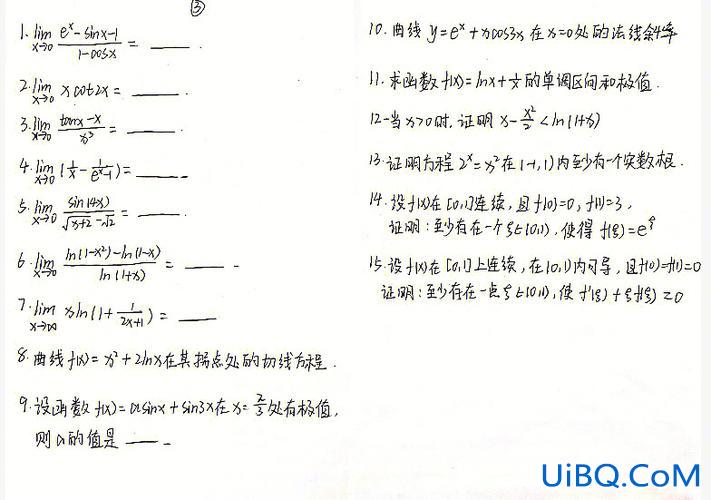 ③
1. lim x→0 (e^x - sinx - 1)/(1 - cosx) = ____ .
2. lim x→0 x cot2x = ____ .
3. lim x→0 (tanx - x)/x³ = ____ .
4. lim x→0 (1/x - 1/(e^x-1)) = ____
5. lim x→0 sin(4x)/(√(x+2) - √2) = ____ .
6. lim x→0 (ln(1-x²) - ln(1-x))/ln(1+x) = ____ .
7. lim x→∞ xln(1 + 1/(2x+1)) = ____
8. 曲线 f(x) = x² + 2lnx 在其拐点处的切线方程 .
9. 设函数 f(x) = asinx + sin3x 在 x = π/3 处有极值,
则a的值是 ____ .
10. 曲线 y = e^x + xcos3x 在 x=0 处的法线斜率
11. 求函数 f(x) = lnx + 1/x 的单调区间和极值 .
12. 当 x>0 时, 证明 x - x²/2 < ln(1+x)
13. 证明方程 2^x = x² 在 (-1,1) 内至少有一个实数根 .
14. 设 f(x) 在 [0,1] 连续, 且 f(0)=0, f(1)=3 ,
证明: 至少有在一个 ξ∈(0,1), 使得 f(ξ) = e^ξ
15. 设 f(x) 在 [0,1] 上连续, 在 (0,1) 内可导, 且 f(0)=f(1)=0
证明: 至少存在一点 ξ∈(0,1), 使 f'(ξ) + ξf(ξ) = 0
UiBQ.CoM